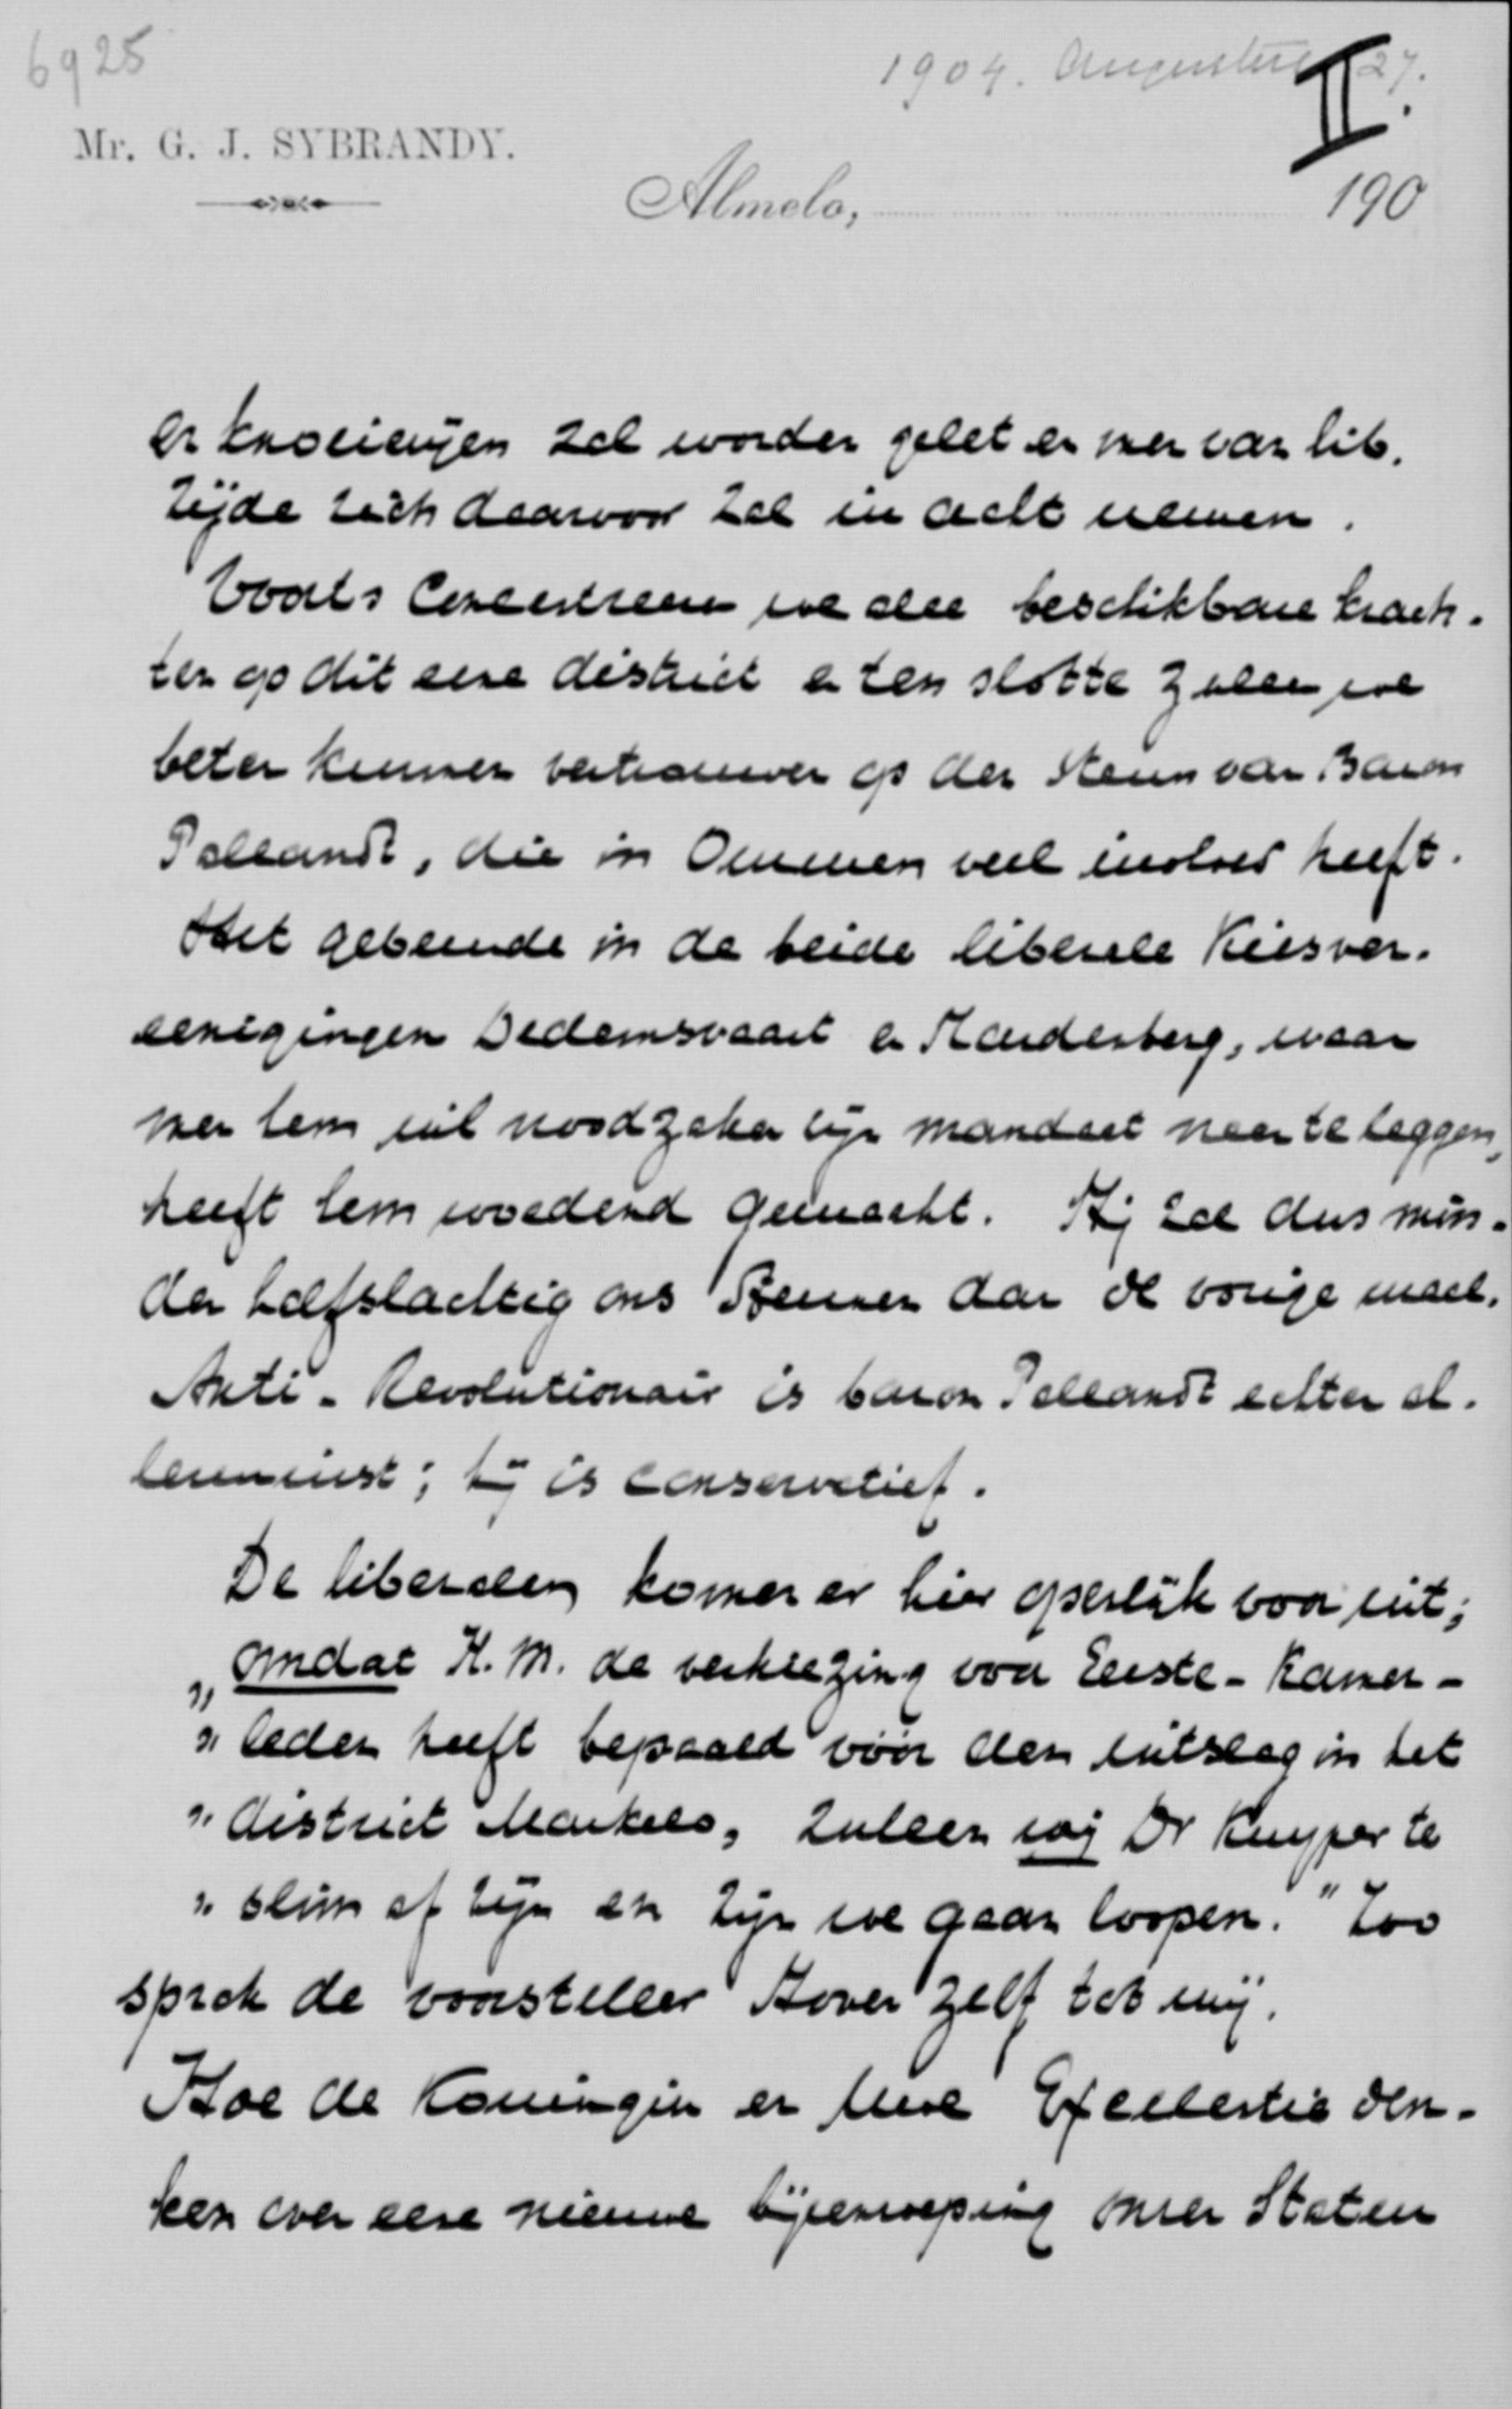 6925
1904. Augustus 27.
II.
Mr. G. J. SYBRANDY.
Almelo, 190
en knoeierijen zal worden gelet en men van lib.
zijde zich daarvoor zal in acht nemen.
Voorts concentreeren we alle beschikbare krach-
ten op dit eene district en ten slotte zullen we
beter kunnen vertrouwen op den steun van Baron
Pallandt, die in Ommen veel invloed heeft.
Het gebeurde in de beide liberale Kiesver-
eenigingen Dedemsvaart en Hardenberg, waar
men hem wil noodzaken zijn mandaat neer te leggen,
heeft hem woedend gemaakt. Hij zal dus min-
der halfslachtig ons steunen dan de vorige maal.
Anti-Revolutionair is baron Pallandt echter al-
lerminst; hij is conservatief.
De liberalen komen er hier openlijk voor uit;
„omdat H. M. de verkiezing voor Eerste-Kamer-
„leden heeft bepaald vóór den uitslag in het
„district Markelo, zullen wij Dr Kuyper te
„slim af zijn en zijn we gaan loopen." Zoo
sprak de voorsteller Hoven zelf tot mij.
Hoe de Koningin en Uwe Excellentie den-
ken over eene nieuwe bijeenroeping onzer Staten